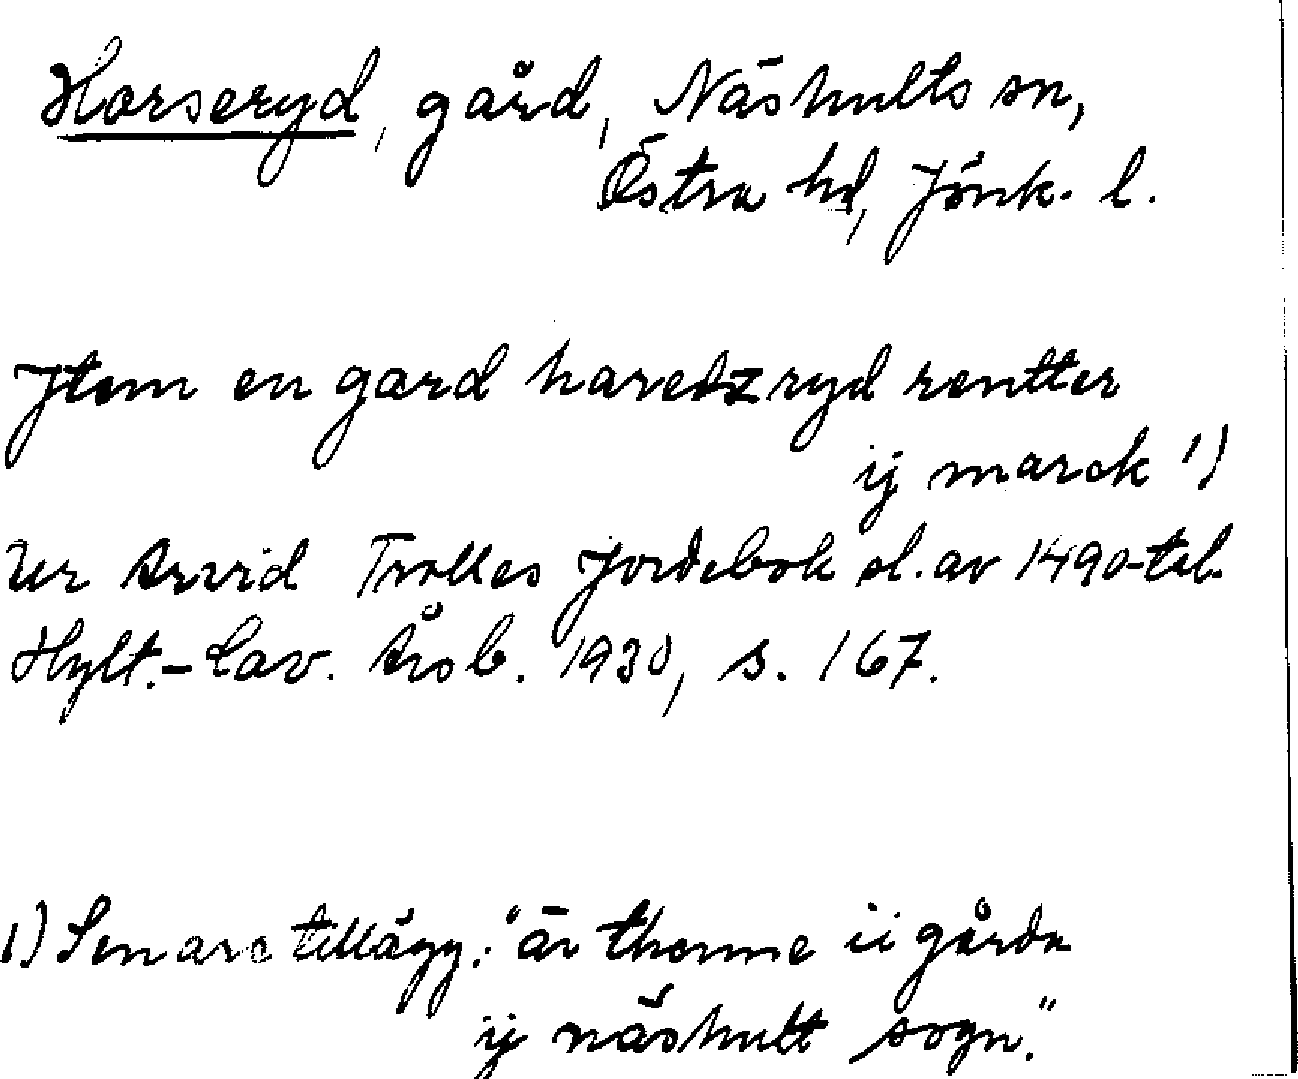 Horseryd, gård, Näshults sn,
Östra hd, Jönk. l.
Jtem en gard haredzryd rentter
ij marck 1)
Ur Arvid Trolles Jordebok sl. av 1490-tal.
Hylt.-Cav. Årsb. 1930, s. 167.
1) Senare tillägg: "är thenne ii gårda
ij näshultt sogn."